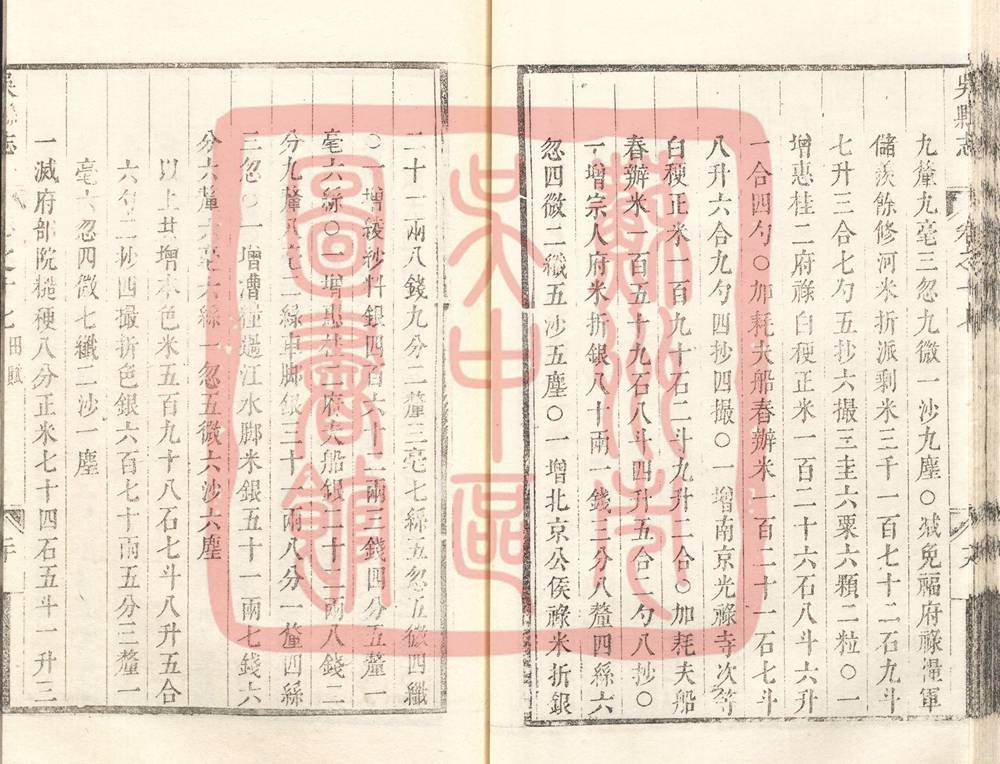 吳縣志
九釐九毫三忽九微一沙九塵〇減免福府祿糧軍
儲羨餘修河米折派剩米三千一百七十二石九斗
七升三合七勺五抄六撮三圭六粟六顆二粒〇一
增惠桂二府祿白稉正米一百二十六石八斗六升
一合四勺〇加耗夫船舂辦米一百二十一石七斗
八升六合九勺四抄四撮〇一增南京光祿寺次等
白稉正米一百九十石二斗九升二合〇加耗夫船
舂辦米一百五十九石八斗四升五合二勺八抄〇
一增宗人府米折銀八十兩一錢三分八釐四絲六
忽四微二纖五沙五塵〇一增北京公侯祿米折銀
二十一兩八錢九分二釐三毫七絲五忽五微四纖
〇一增綾紗料銀四百六十二兩三錢四分五釐一
毫六絲〇一增惠桂二府夫船銀二十二兩八錢二
分九釐 絲車脚銀三十一兩八分一釐四絲
三忽〇一增漕糧過江水脚米銀五十一兩七錢六
分六釐 毫六絲一忽五微六沙六塵
以上共增本色米五百九十八石七斗八升五合
六勺二抄四撮折色銀六百七十兩五分三釐一
毫六忽四微七纖二沙一塵
一減府部院糙稉八分正米七十四石五斗一升三
田賦
蘇州吳中區圖書館